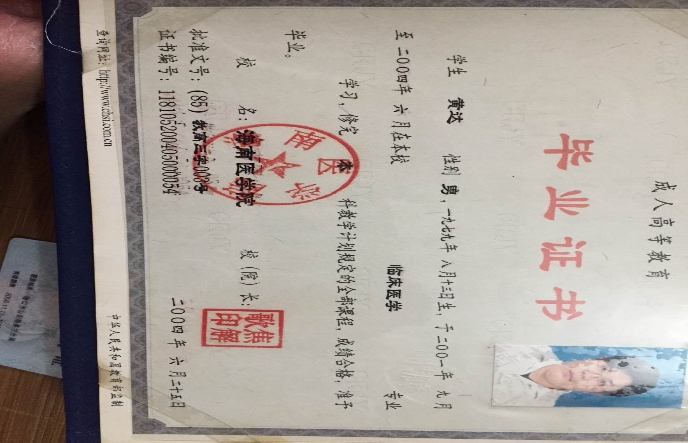 成人高等教育
毕业证书
学生 黄达 性别 男，一九七九年 八月十三日生，于二〇〇一年 九月
至二〇〇四年 六月在本校 临床医学 专业
学习，修完 本 科教学计划规定的全部课程，成绩合格，准予
毕业。
校 名：海南医学院 校（院）长：
批准文号：(85)教高三字008号
证书编号：118105200405000054
二〇〇四年 六月二十五日
查询网址：http://www.chsi.com.cn
中华人民共和国教育部监制